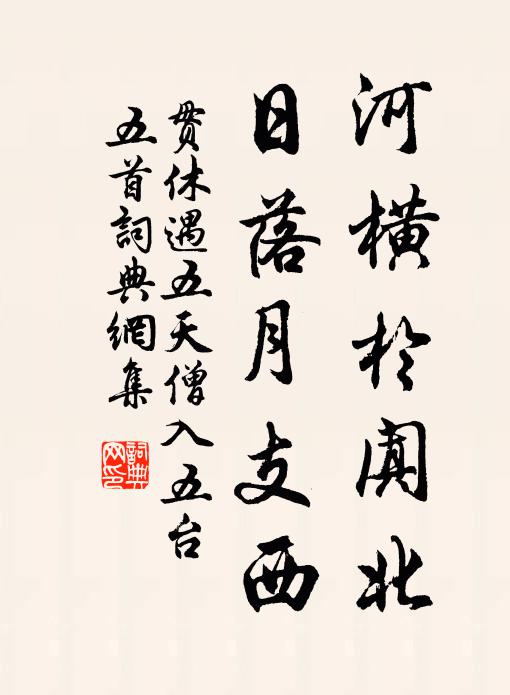 河橫於闐北
日落月支西
貫休遇五天僧入五台
五首詞典網集
詞典网印